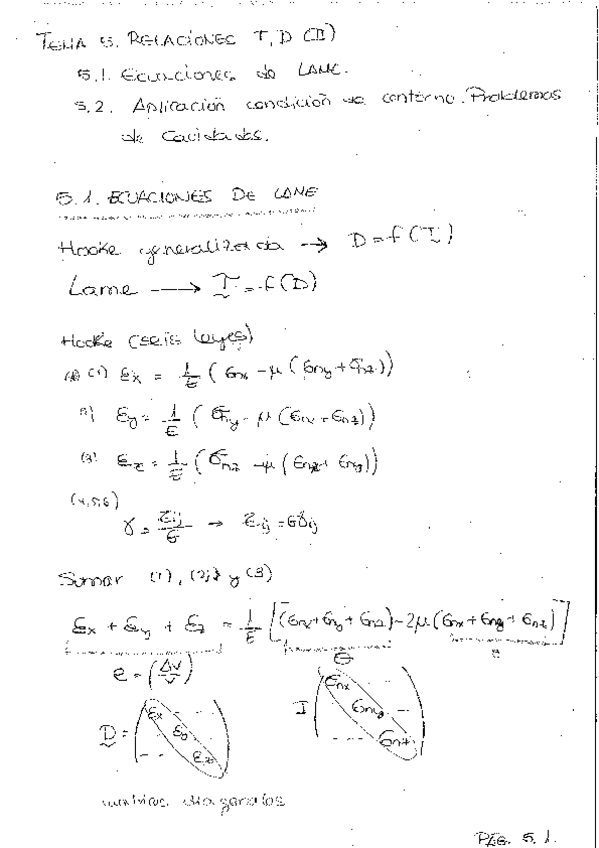 TEMA 5. RELACIONES T, D (II)
5.1. Ecuaciones de LAME.
5.2. Aplicación condición de contorno. Problemas
de Cavidades.
5.1. ECUACIONES DE LAME
Hooke generalizada → D = f(T)
Lame → T = f(D)
Hooke (seis leyes)
(1) εx = 1/E (σnx - μ (σny + σnz))
2) εy = 1/E (σny - μ (σnx + σnz))
(3) εz = 1/E (σnz - μ (σnx + σny))
(4,5,6)
γ = τij/G → τij = Gγij
Sumar (1), (2) y (3)
εx + εy + εz = 1/E [(σnx + σny + σnz) - 2μ (σnx + σny + σnz)]
e = (ΔV/V) θ θ
D = ( εx εy εz ) T ( σnx σny σnz )
matrices diagonales
PÁG. 5.1.